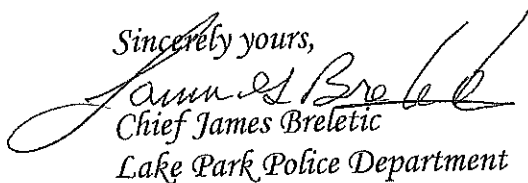 Sincerely yours,
Chief James Breletic
Lake Park Police Department